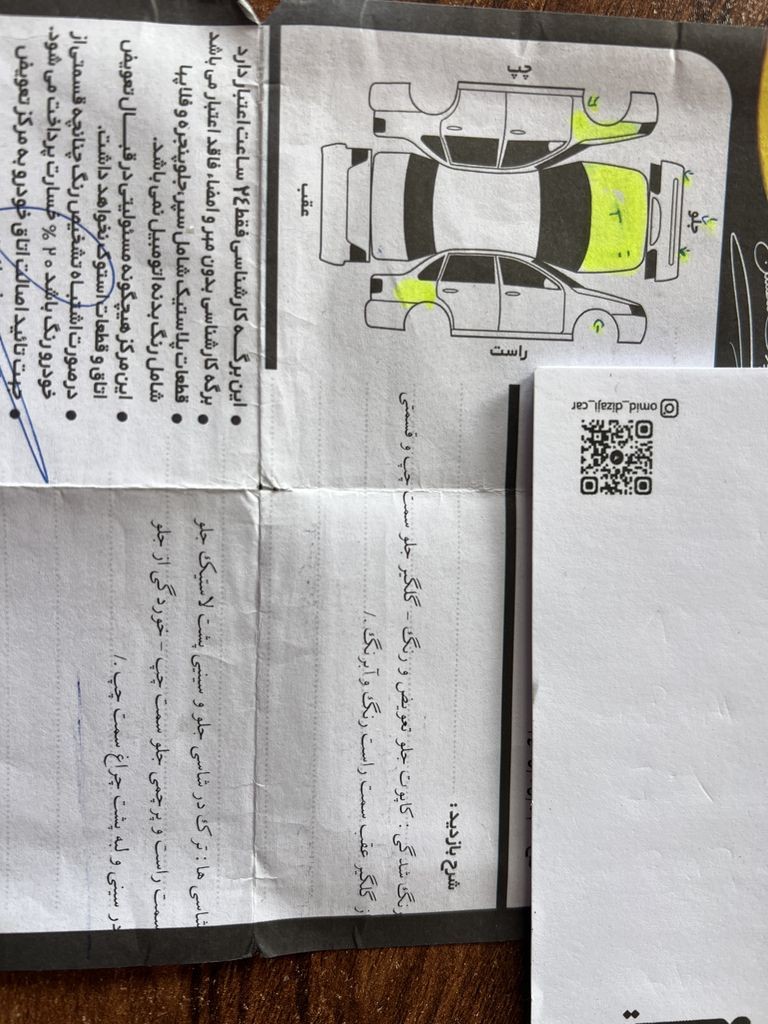 چپ
جلو
عقب
راست
T
omid_dizaji_car
شرح بازدید :
رنگ شدگی : کاپوت جلو تعویض و رنگ - گلگیر جلو سمت چپ و قسمتی
از گلگیر عقب سمت راست رنگ و آبرنگ ./
شاسی ها : ترک در شاسی جلو و سینی پشت لاستیک جلو
سمت راست و پرچمی جلو سمت چپ - خوردگی از جلو
در سینی و لبه پشت چراغ سمت چپ ./
● این برگه کارشناسی فقط ۲۴ ساعت اعتبار دارد
● برگه کارشناسی بدون مهر و امضاء فاقد اعتبار می باشد
قطعات پلاستیک شامل سپر جلو پنجره و فلاپها
شامل رنگ بدنه اتومبیل نمی باشد.
● این مرکز هیچگونه مسئولیتی در قبال تعویض
اتاق و قطعات استوک نخواهد داشت.
● در صورت اشتباه تشخیص رنگ چنانچه قسمتی از
خودرو رنگ باشد ۲۰ % خسارت پرداخت می شود.
● جهت تائید اصالت اتاق خودرو به مرکز تعویض